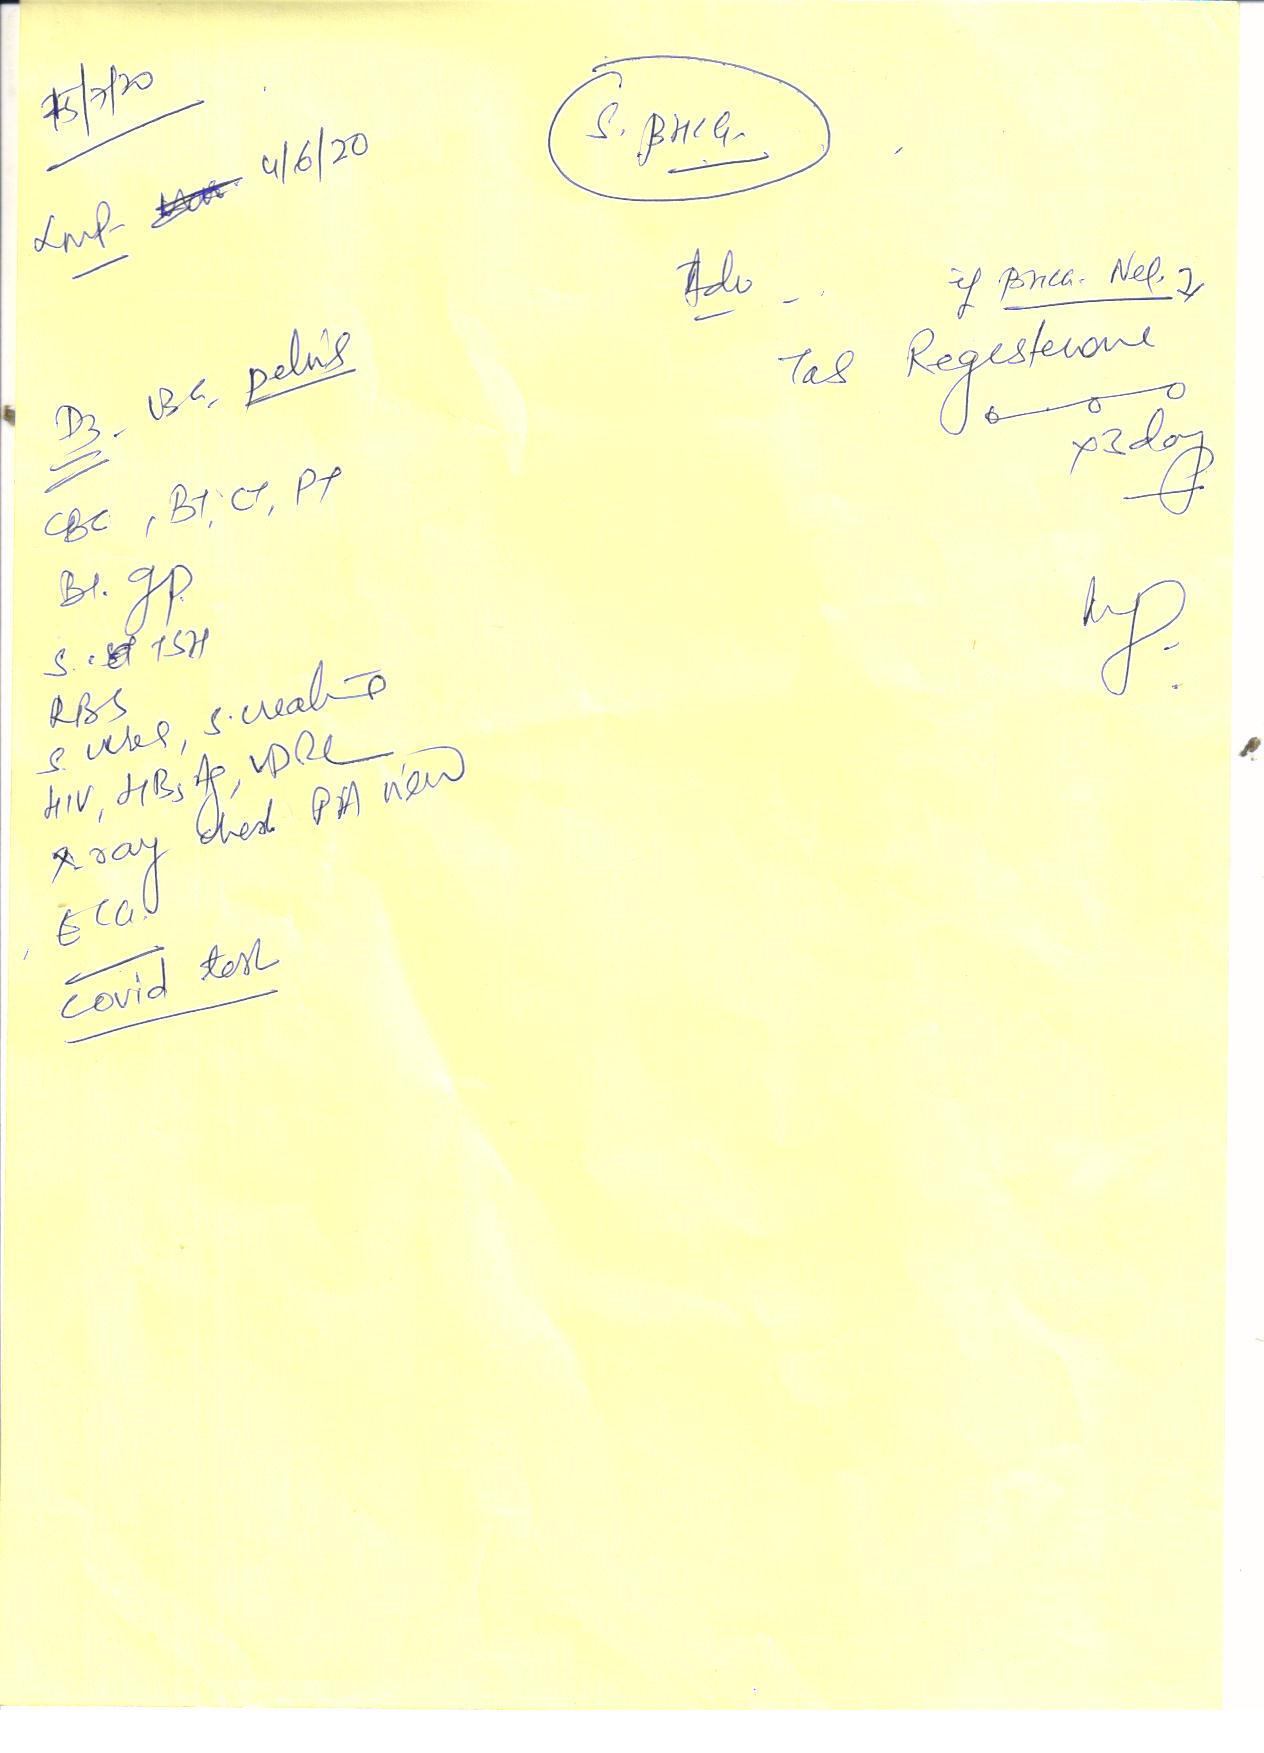 15/7/20
S. BHCG.
Lmp - 4/6/20
Adv -
if BHCG. Neg.
Tab Regesterone
x 3 day
D3 - USG, pelvis
CBC, BT, CT, PT
Bl. gp.
S. TSH
RBS
S. urea, S. creatin
HIV, HBsAg, VDRL
X ray chest PA view
ECG.
Covid test